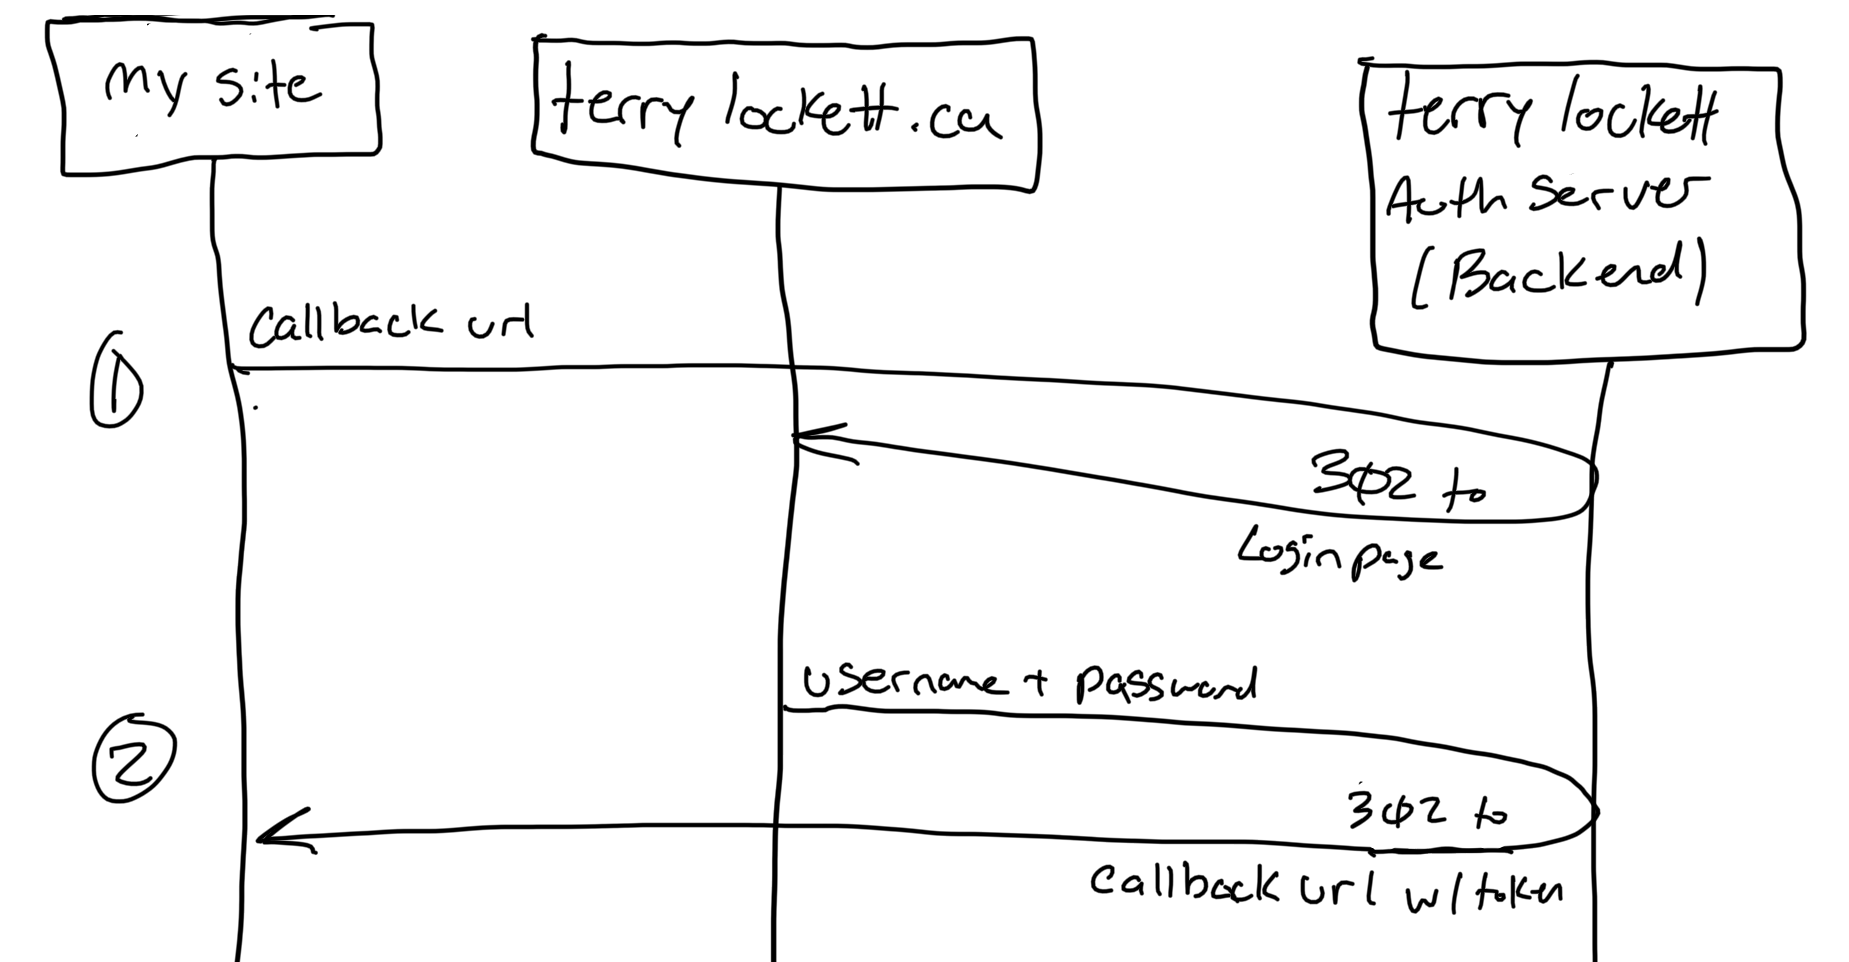 my site
terry lockett.ca
terry lockett
Auth Server
(Backend)
callback url
1
302 to
Login page
username + password
2
302 to
callback url w/ token